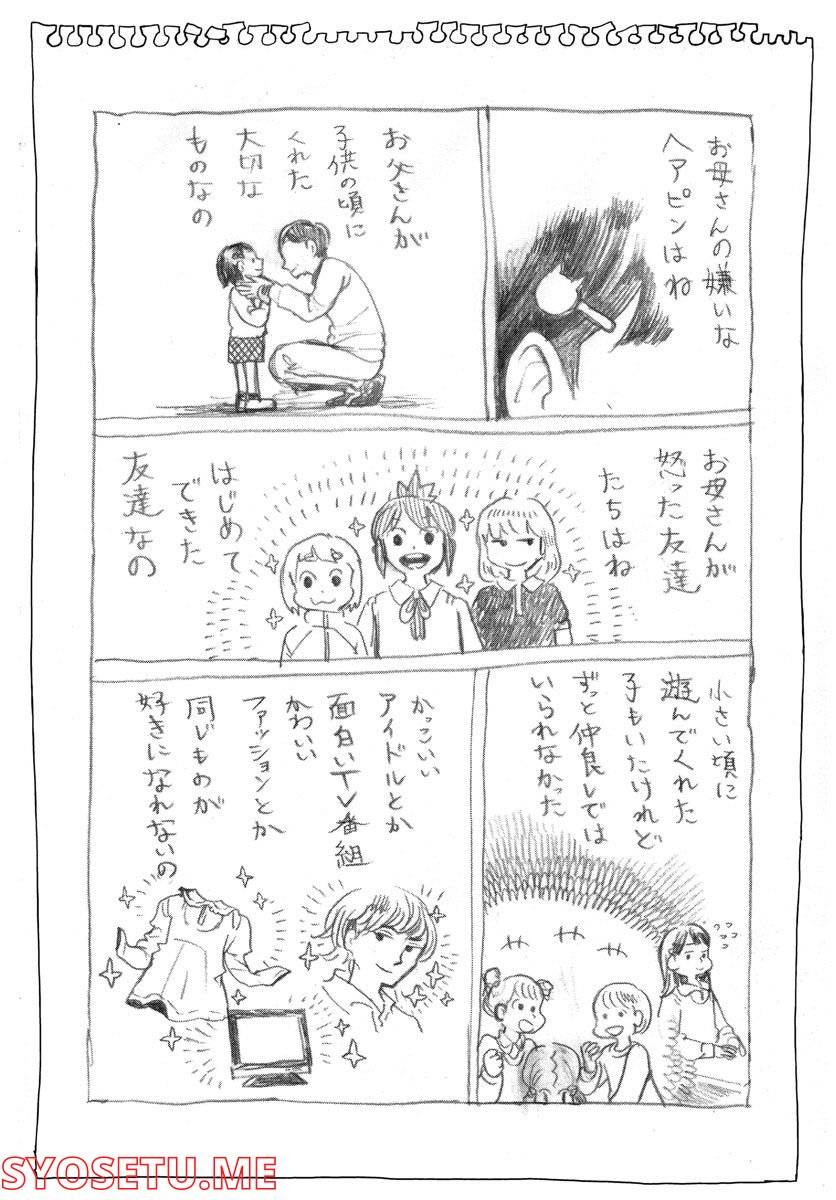 お母さんの嫌いな
ヘアピンはね
お父さんが
子供の頃に
くれた
大切な
ものなの
お母さんが
怒った友達
たちはね
はじめて
できた
友達なの
小さい頃に
遊んでくれた
子もいたけれど
ずっと仲良しでは
いられなかった
かっこいい
アイドルとか
面白いTV番組
かわいい
ファッションとか
同じものが
好きになれないの
SYOSETU.ME